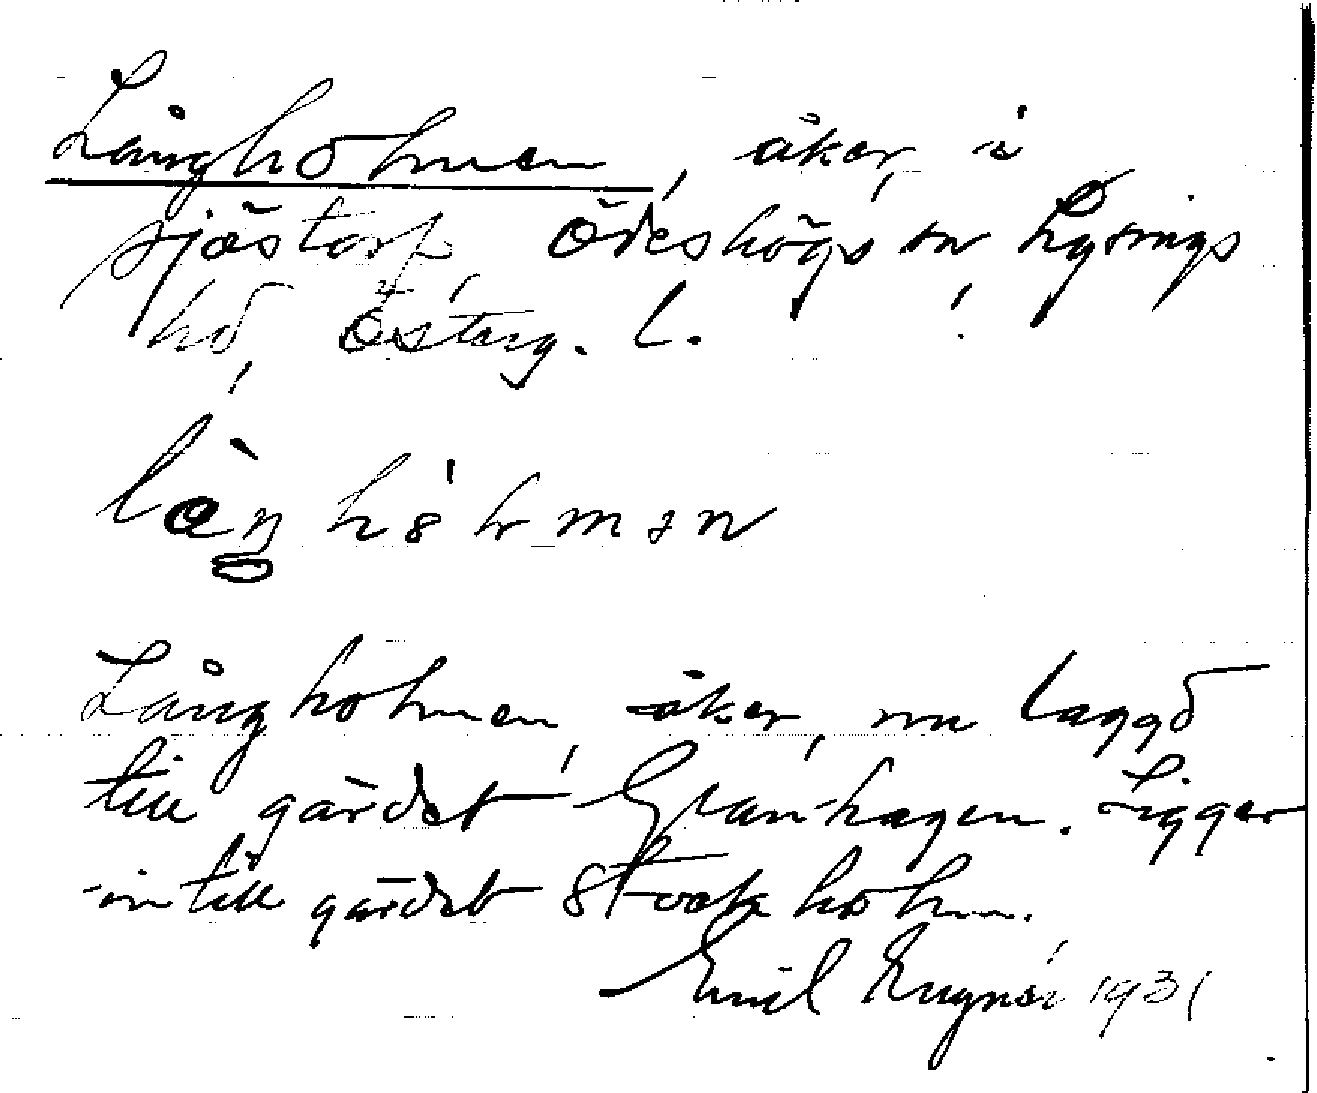 Långholmen, åker, i
Sjöstorp, Ödeshögs sn Lysings
hd, Österg. l.
Långholmen, åker, nu laggd
till gärdet Granhagen. Ligger
in till gärdet Stockholm.
Emil 1931